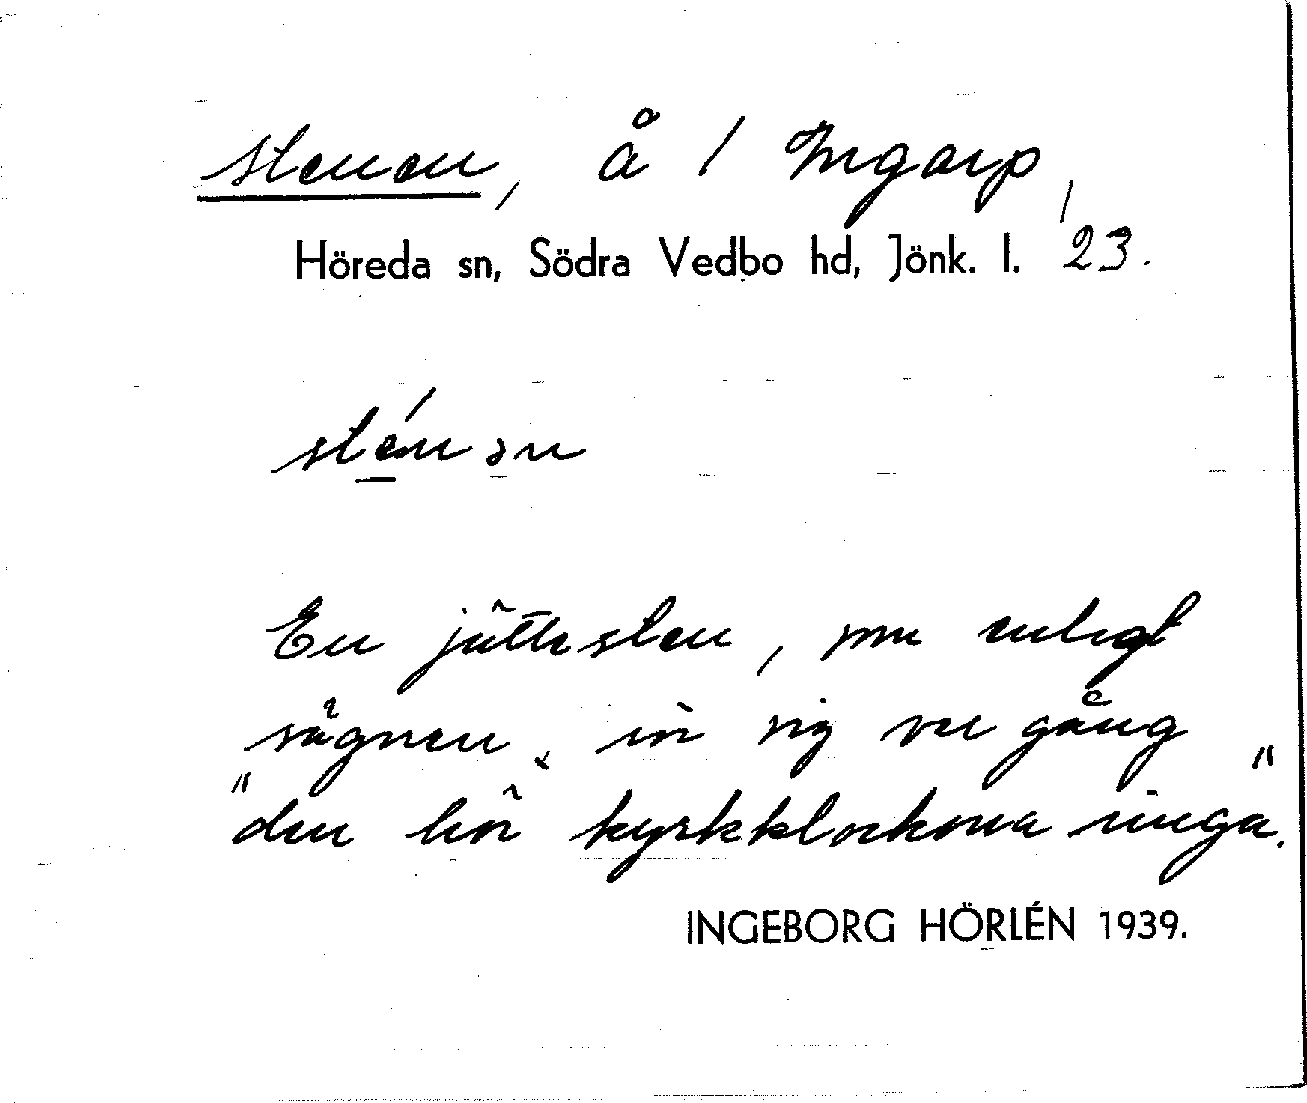 Stenen, å / Ingarp,
Höreda sn, Södra Vedbo hd, Jönk. l. 23.
sténən
En jättesten, som enligt
sägnen, rör sig var gång
"den hör kyrkklockorna ringa."
INGEBORG HÖRLÉN 1939.